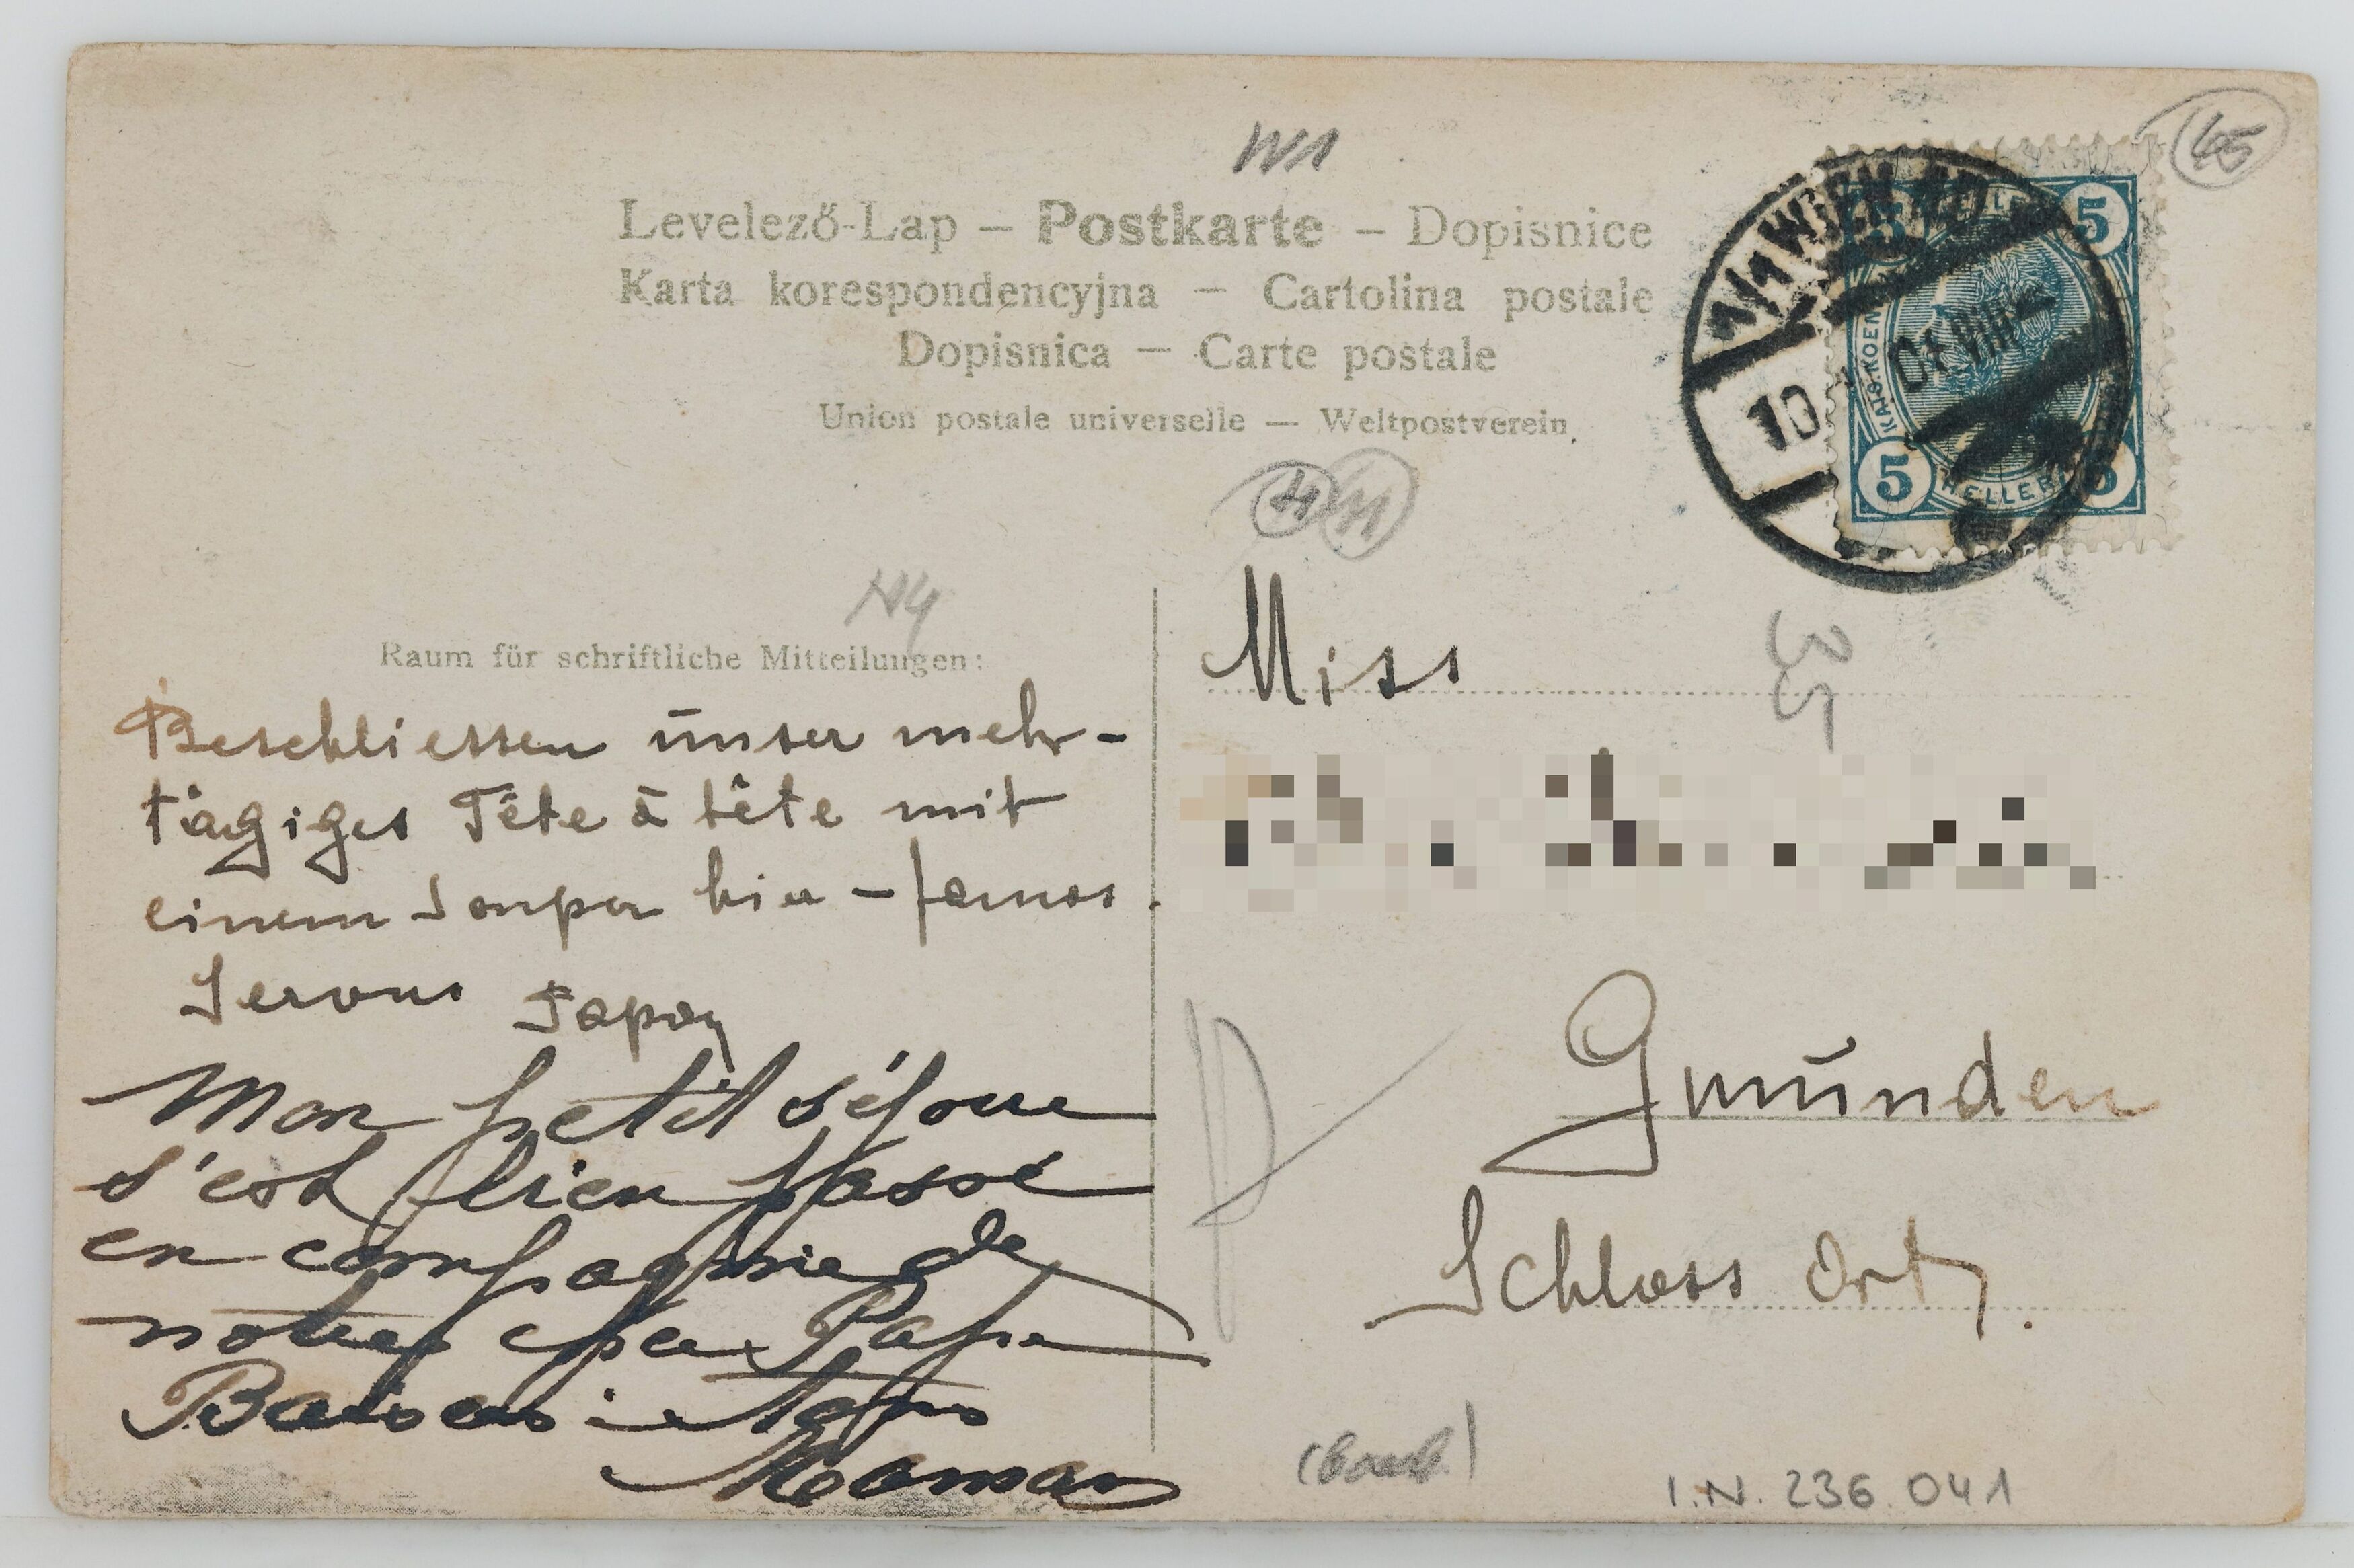 W1
45
Levelező-Lap – Postkarte – Dopisnice
Karta korespondencyjna – Cartolina postale
Dopisnica – Carte postale
Union postale universelle — Weltpostverein.
1/1 WIEN
10
VIII
5 5
KAIS. KOEN
5 HELLER 5
Raum für schriftliche Mitteilungen:
Beschliessen unser mehr-
tägiges Tête à tête mit
einem Souper hier – famos.
Servus Papa
Mon petit séjour
s'est bien passé
en compagnie de
notre cher Papa
Baisers
Maman
Miss
35
Gmunden
Schloss Ort.
I.N. 236.041